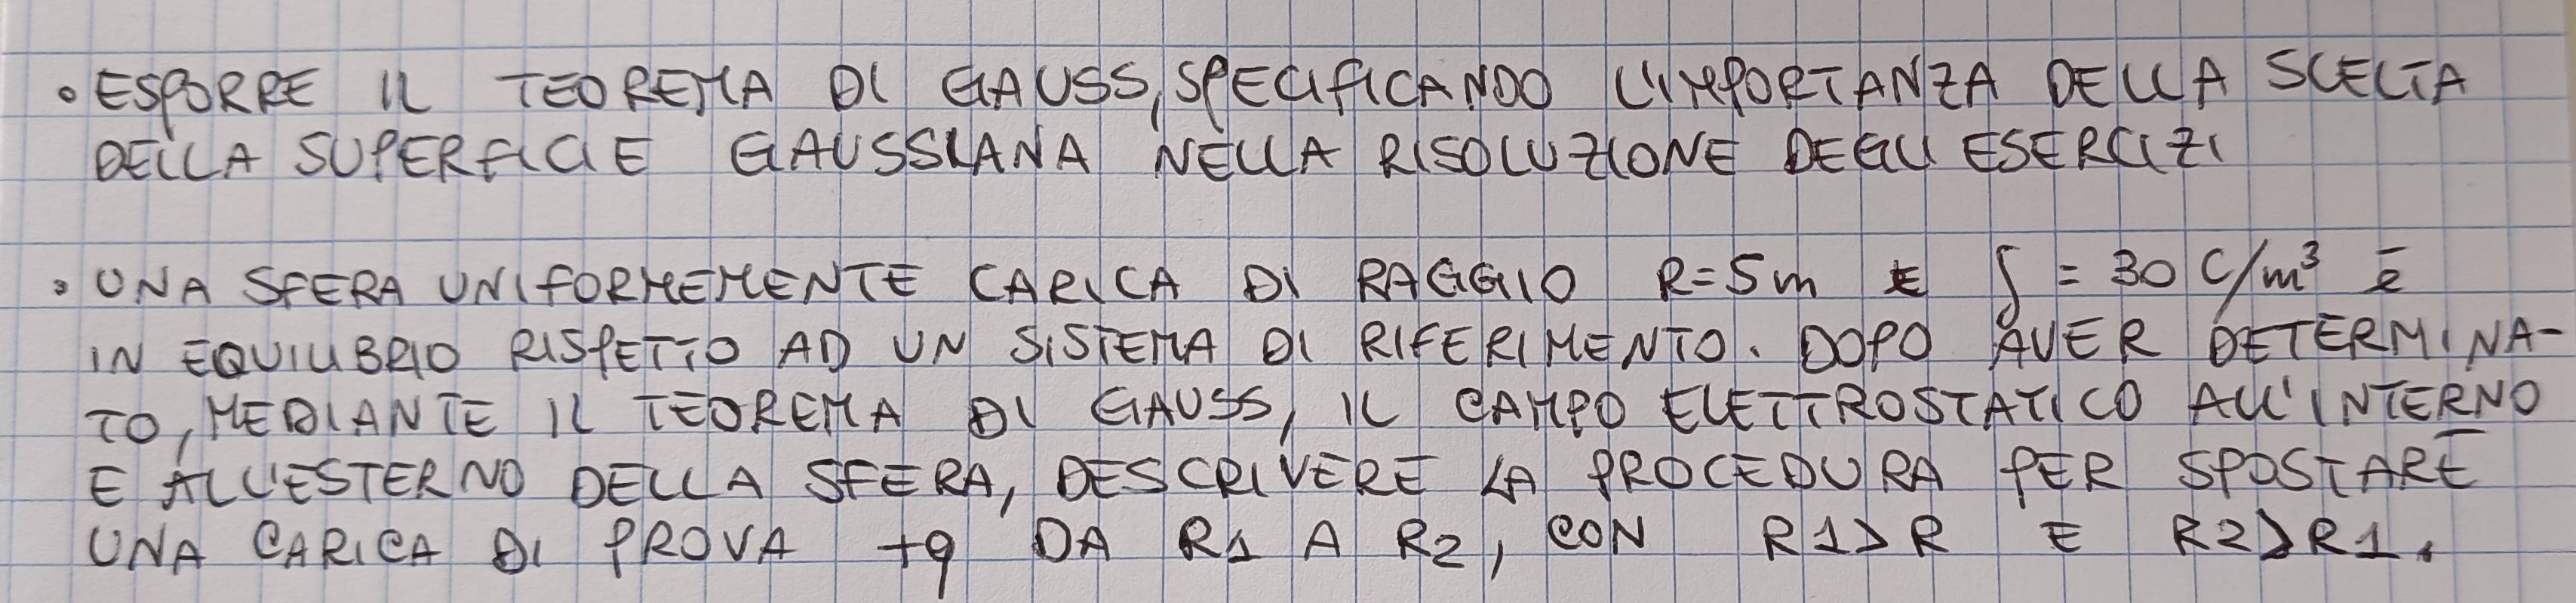 • ESPORRE IL TEOREMA DI GAUSS, SPECIFICANDO L'IMPORTANZA DELLA SCELTA
DELLA SUPERFICIE GAUSSIANA NELLA RISOLUZIONE DEGLI ESERCIZI
• UNA SFERA UNIFORMEMENTE CARICA DI RAGGIO R=5m E ρ = 30 C/m³ è
IN EQUILIBRIO RISPETTO AD UN SISTEMA DI RIFERIMENTO. DOPO AVER DETERMINA-
TO, MEDIANTE IL TEOREMA DI GAUSS, IL CAMPO ELETTROSTATICO ALL'INTERNO
E ALL'ESTERNO DELLA SFERA, DESCRIVERE LA PROCEDURA PER SPOSTARE
UNA CARICA DI PROVA +q DA R1 A R2, CON R1>R E R2>R1.